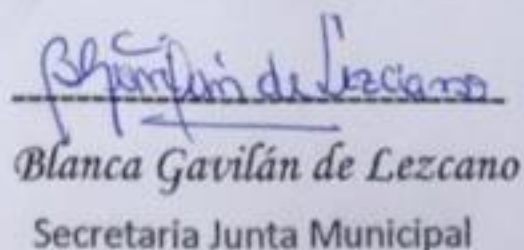 de Lezcano
Blanca Gavilán de Lezcano
Secretaria Junta Municipal